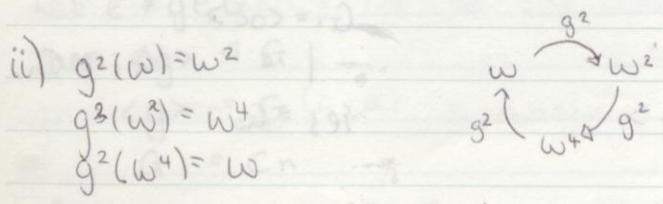 ii) g²(ω)=ω²
g³(ω²)=ω⁴
g²(ω⁴)= ω
g²
ω ω²
g² g²
ω⁴